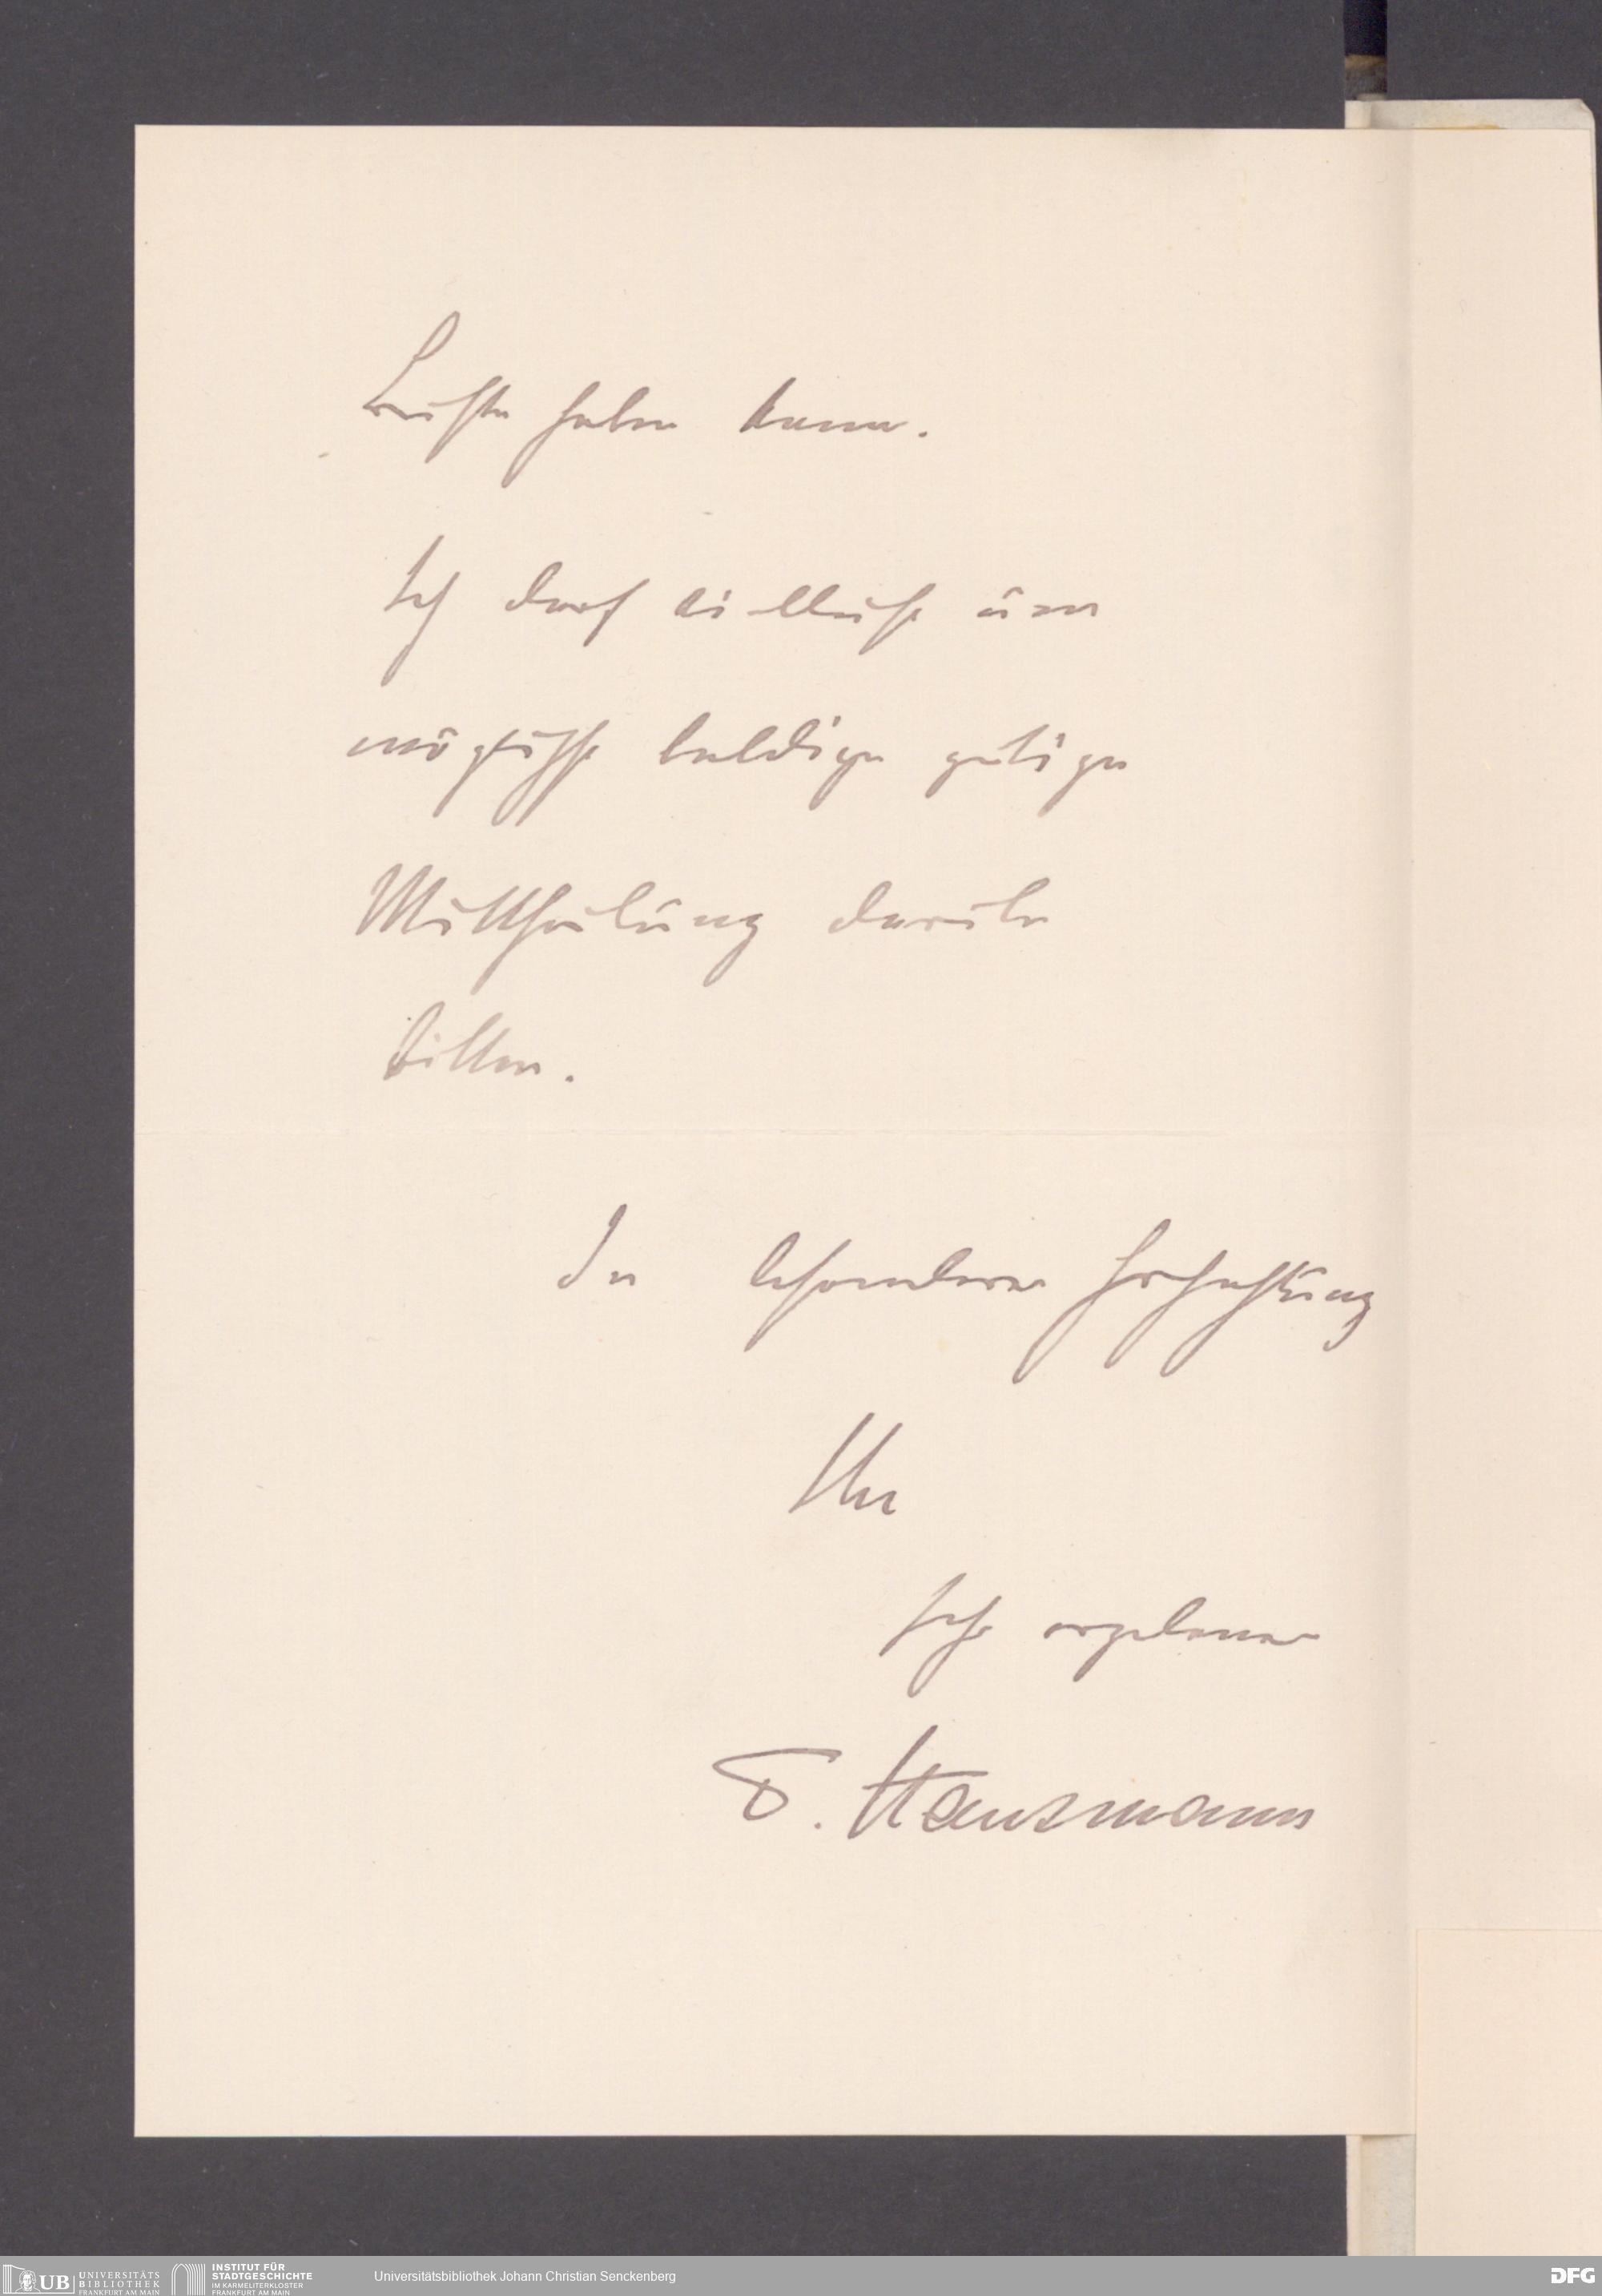 haben kann.
Ich darf vielleicht um
möglichst baldige gütige
Mittheilung darüber
bitten.
In besonderer Hochachtung
Ihr
sehr ergebener
F. Hansmann
UB UNIVERSITÄTS BIBLIOTHEK FRANKFURT AM MAIN
INSTITUT FÜR STADTGESCHICHTE IM KARMELITERKLOSTER FRANKFURT AM MAIN
Universitätsbibliothek Johann Christian Senckenberg
DFG